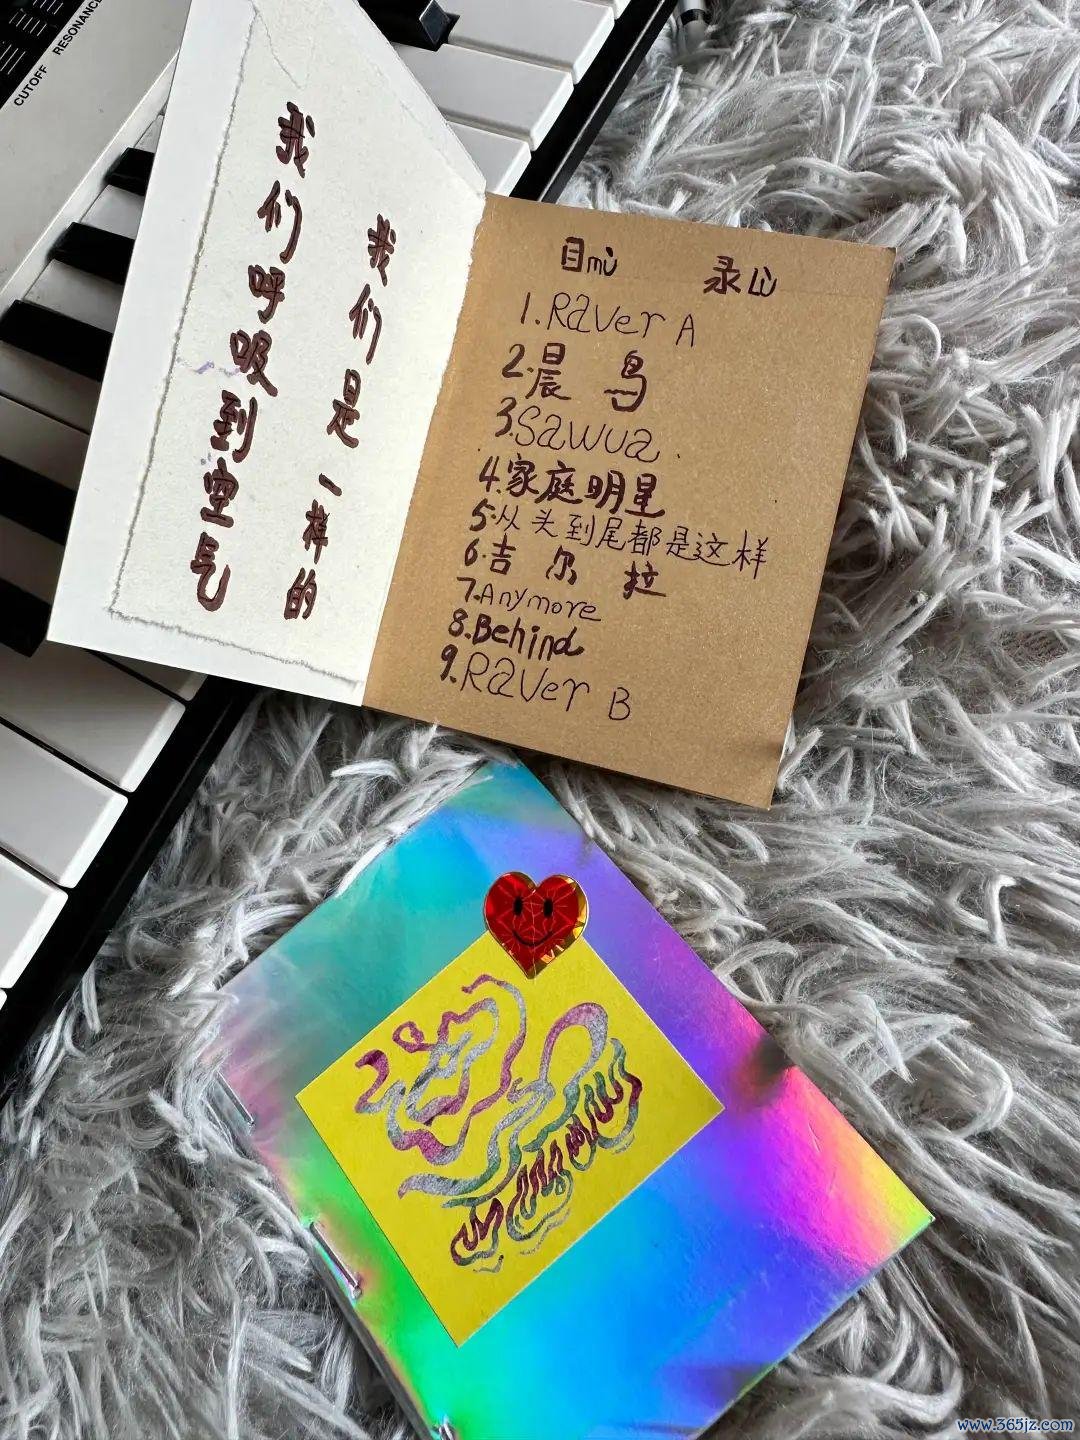 CUTOFF RESONANCE
我们呼吸到空气
我们是一样的
目mù 录lù
1.Raver A
2.晨 鸟
3.Sawua
4.家庭明星
5.从头到尾都是这样
6.吉 尔 拉
7.Anymore
8.Behind
9.Raver B
www.365jz.com